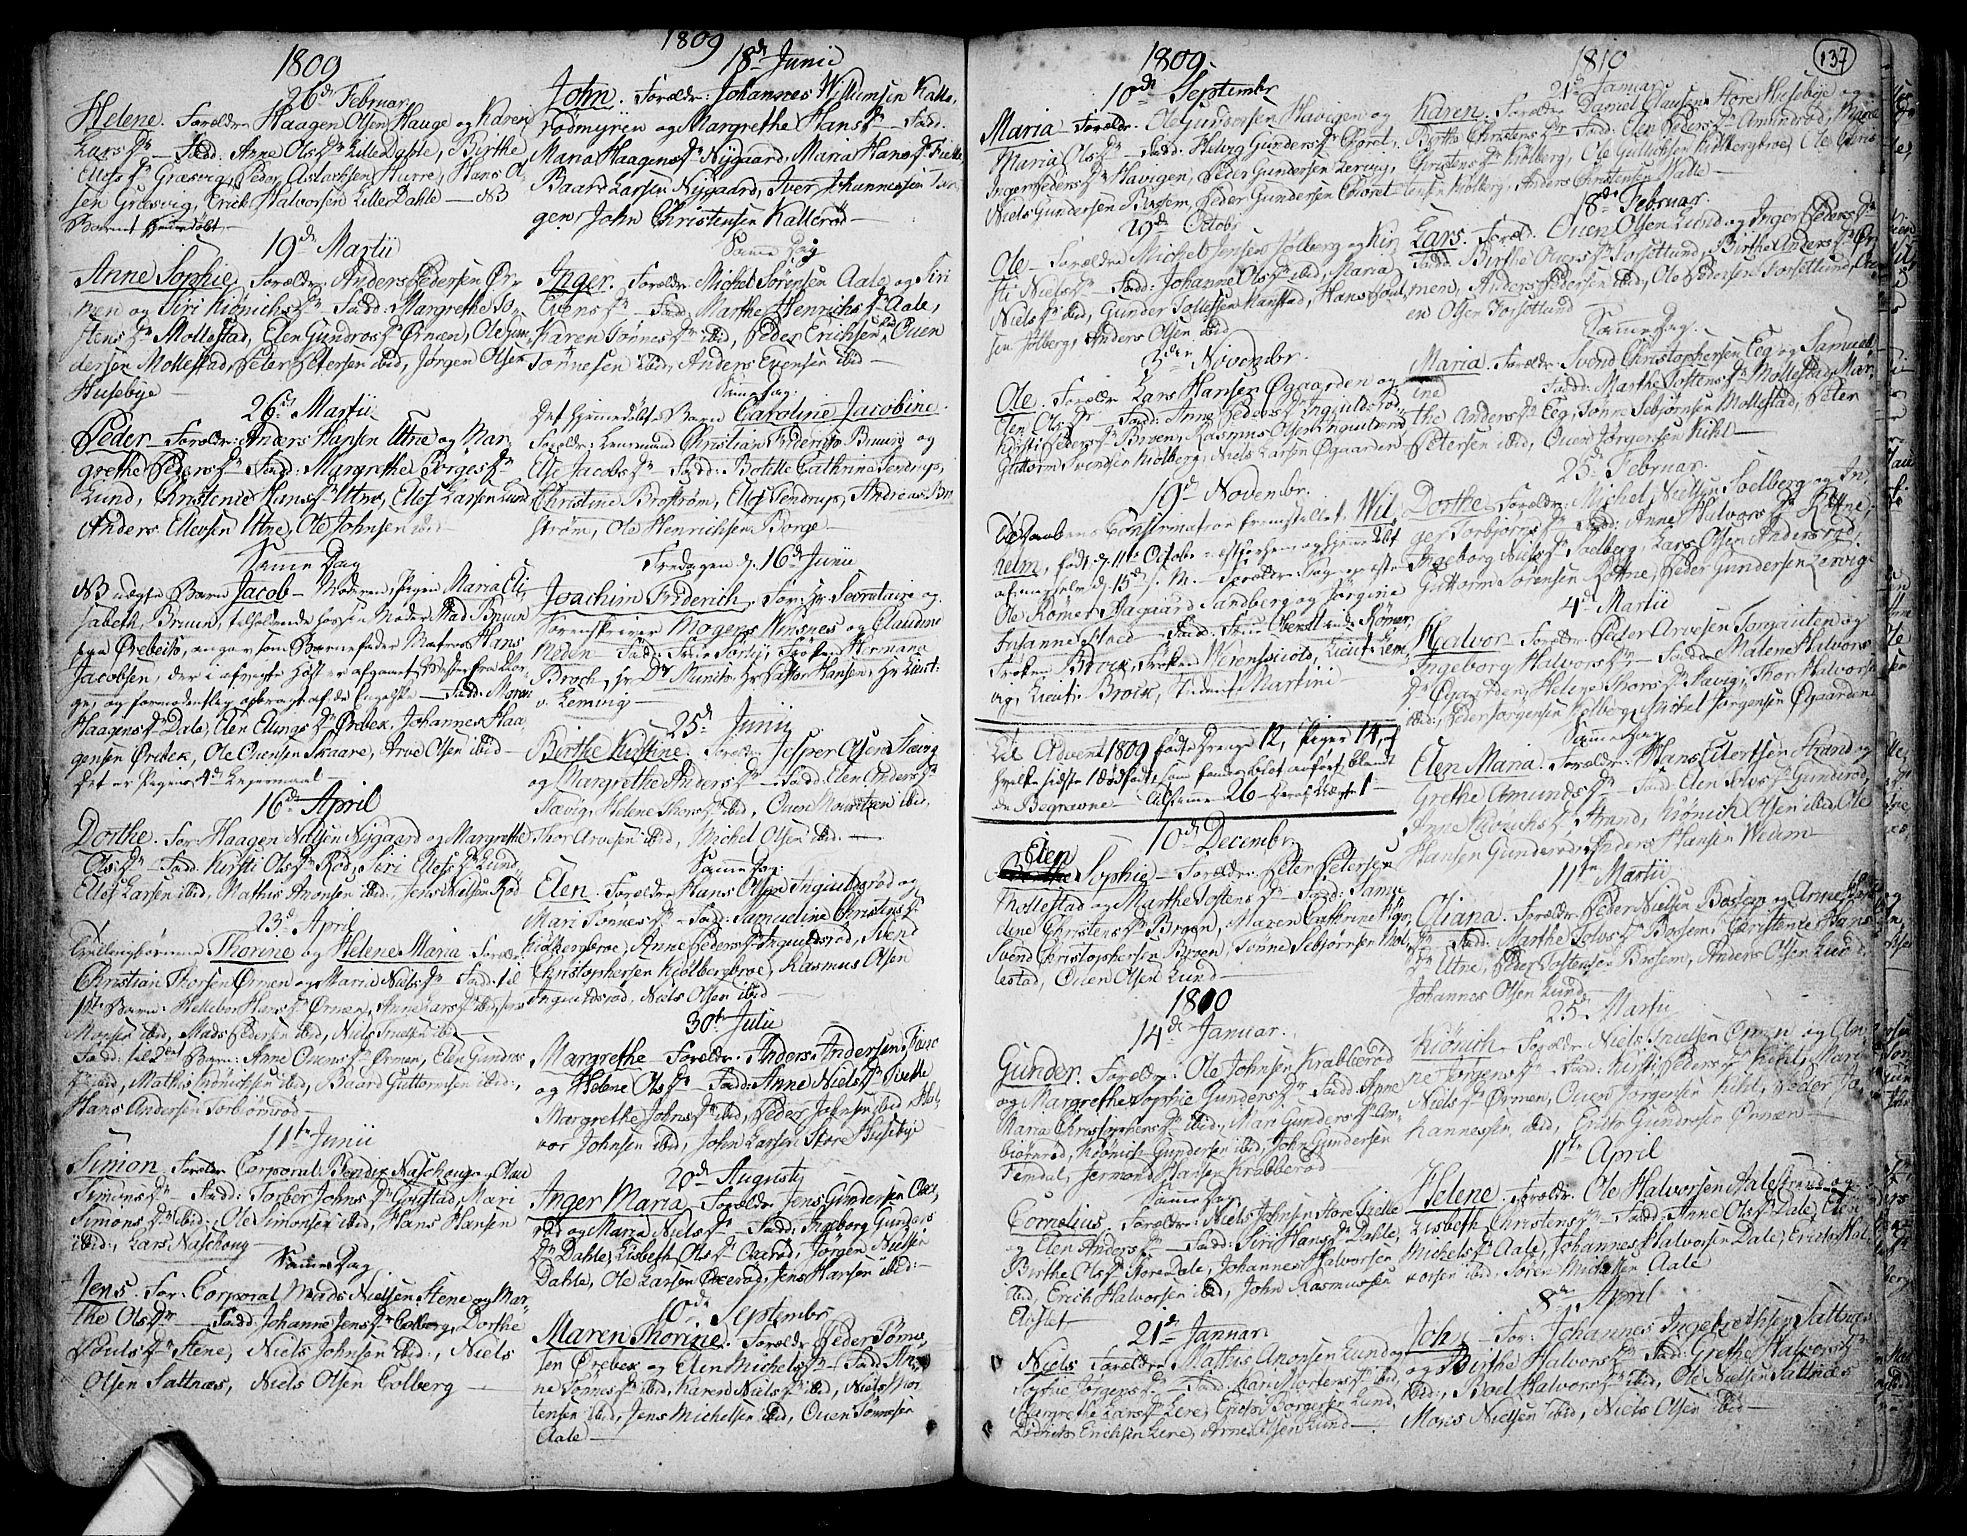 1809
26d Februar
Helene. Forældr. Haagen Olsen Hauge og Karen
Lars Dr — Fadd: Anne Ols Dr Lille Dahle, Birthe
Elles Dr Græsvig, Peder Aslachsen Hurre, Hans Ol
sen Græsvig, Erich Halvorsen Lille Dahle — NB
Barnet hiemdøbt —
19d Martii
Anne Sophie. Forældr. Anders Pedersen Ør
men og Siri Kiønichs Dr — Fadd: Margrethe To
stens Dr Mollestad, Elen Gundros Dr Ørmen, Ole Gun
dersen Mollestad, Peter Petersen ibid, Jørgen Olsen
Husebye —
26d Martii
Peder — Forældr: Anders Hansen Utne og Mar
grethe Peders Dr Fadd: Margrethe Borges Dr
Lund, Christenie Hans Dr Utne, Elef Larsen Lund
Anders Ellevsen Utne, Ole Johnsen ibid —
Samme Dag
NB uægte Barn Jacob — Moderen, Pigen Maria Eli
sabeth Bruun, tilholdende hos sin Moder Mad Bruun
paa Ørebek, angav som Barnefader Matros Hans
Jacobsen, der i afvigte Høst er afgaaet
ge, og formodentlig opbragt af de Engelske — Fadd: Maren
Haagens Dr Dale, Elen Elungs Dr Ørebek, Johannes Haa
gensen Ørebek, Ole Ouensen Skaare, Arve Olsen ibid —
Det er Pigens 1d Leiermaal —
16d April
Dorthe. For: Haagen Nilsen Nygaard og Margrethe
Ols Dr — Fadd: Kirsti Ols Dr Rød, Siri Elefs Dr Lund,
Elef Larsen ibid, Mathis Anonsen ibid, Jens Nielsen Rød
23d April
Tvillingbørnene Thorine og Helene Maria Forældr:
Christian Thorsen Ørmen og Maria Niels Dr — Fadd: til
1ste Barn: Hellebor Hans Dr Ørmen, Anne Lars Dr ibid, Jens
Monsen ibid, Mads Pedersen ibid, Niels Truelsen ibid —
Fadd: til 2det Barn: Anne Ouens Dr Ørmen, Elen Gundros
Dr ibid, Mathis Kiønichsen ibid, Baard Guttormsen ibid.,
Hans Andersen Torbiørnrød —
11te Junii
Simon. Forældr. Corporal Bendix Naschoug og Oleu
Simons Dr — Fadd: Torber Johns Dr Gryestad, Mari
Simons Dr ibid:, Ole Simonsen ibid, Hans Hansen
ibid:, Lars Naschoug —
Samme Dag
Jens. For: Corporal Mads Nielsen Stene og Mar
the Ols Dr — Fadd: Johanne Jens Dr Colberg, Dorthe
Pouls Dr Stene, Niels Johnsen ibid:, Niels
Olsen Saltnæs, Niels Olsen Colberg —
1809
18d Junii
John. Forældr: Johannes Willumsen Kalle
rødmyren og Margrethe Hans Dr — Fadd.
Maria Haagens Dr Nygaard, Maria Hans Dr Tvette
Baard Larsen Nygaard, Iver Johannessen Tan
gen, John Christensen Kallerød —
Samme Dag
Inger. Forældr: Michel Sørensen Aale og Siri
Evens Dr — Fadd: Marthe Henrichs Dr Aale,
Karen Tønnes Dr ibid, Peder Erichsen ibid, Ouen
Tønnesen ibid, Anders Evensen ibid —
Samme Dag.
Det hiemmedøbte Barn Caroline Jacobine.
Forældr: Leermand Christian Friderich Bruun og
Else Jacobs Dr — Fadd: Bolette Cathrina Tendrup,
Christine Brostrøm, Elef Tendrup, Andreas Bro
strøm, Ole Henrichsen Borge —
Fredagen d. 16d Junii
Joachim Friderich. For: Hr Secretaire og
Sorenskriver Mogens Winsnes og Claudine
Meden — Fadd: Frøken Hermana
Brock, Hr Dr Munik, Hr Pastor Hansen, Hr Lieut:
v. Leming —
25d Junii
Birthe Kirstine. Forældr. Jesper Olsen Tøavig
og Margrethe Anders Dr — Fadd: Elen Anders Dr
Tøavig, Helene Thors Dr ibid, Ouen Mouritzen ibid,
Thor Arvesen ibid, Michel Olsen ibid. —
Samme Dag
Elen. Forældr. Hans Olsen Inguldsrød og
Mari Tønnes Dr — Fadd: Samueline Christens Dr
Kiølbergbroe, Anne Peders Dr Inguldsrød, Svend
Christophersen Kiølbergbroe, Rasmus Olsen
Inguldsrød, Niels Olsen ibid —
30te Julii
Margrethe — Forældr. Anders Andersen Tøso
og Helene Ols Dr — Fadd: Anne Niels Dr Tvette
Margrethe Johns Dr ibid, Peder Johnsen ibid, Hal
vor Johnsen ibid, John Larsen Store Husebye —
20d Augusty
Inger Maria. Forældr. Jens Gundersen Oxe
rød og Maria Niels Dr — Fadd: Ingeborg Gunders
Dr Dahle, Lisbeth Ols Dr Oxerød, Jørgen Nielsen
Dahle, Ole Larsen Oxerød, Jens Hansen ibid: —
10d Septembr
Maren Thorine. Forældr. Peder Tønne
sen Ørebek og Elen Michels Dr — Fadd: An
ne Tønnes Dr ibid, Karen Niels Dr ibid, Niels Mor
tensen ibid, Jens Michelsen ibid, Ouen Tønnesen
Aale —
1809.
10d Septembr
Maria — Forældr. Ole Gundersen Havigen og
Maria Ols Dr — Fadd: Helvig Gunders Dr Thoret,
Inger Peders Dr Havigen, Peder Gundersen Lervig,
Niels Gundersen Bosem, Peder Gundersen Thoret
29d Octobr
Ole — Forældr. Michel Jensen Jølberg og Kir
sti Niels Dr — Fadd: Johanne Ols Dr ibid, Maria
Niels Dr ibid, Gunder Tollefsen Kanstad, Hans Poul
sen Jølberg, Anders Olsen ibid
3die Novembr.
Ole. Forældr. Lars Hansen Øgaarden og
Elen Ols Dr — Fadd: Anne Peders Dr Inguldsrød,
Kirsti Peders Dr Broen, Rasmus Olsen Inguldsrød
Guttorm Svendsen Kiølberg, Niels Larsen Øgaarden
19d Novembr.
Til Daabens Confirmation fremstillet Wil
helm, født d. 11te Octobr næstforhen og hiemmedøbt
af mig selv d. 15d s. M. — Forældr: Sogne
Ole Rømer Aagaard Sandberg og Jørgine
Johanne Stoed — Fadd: Frue Oberstinde Rømer,
Frøken Brock, Frøken Werenskiold, Lieut: Lem
og, Lieut: Brock, Martini —
Til Advent 1809 fødte Drenge 12, Piger 14, af
hvilke sidste 1 dødfødt, som findes blot anført blandt
de Begravne — Tilsamme 26 — 1 —
10d Decembr.
Elen
Sophie — Forældr. Peter Petersen
Mollestad og Marthe Tostens Dr — Fadd: Samu
eline Christens Dr Broen, Maren Cathrine
Svend Christophersen Broen, Tønne Sebjørnsen Mol
lestad, Ouen Olsen Lund —
1810
14d Januar.
Gunder. Forældr. Ole Johnsen Krabberød
og Margrethe Sophie Gunders Dr Fadd: Anne
Maria Christophers Dr ibid, Mari Gunders Dr
biørnrød, Kiønich Gundersen ibid, John Gundersen
Tendal, Jermond Hansen Krabberød —
Samme Dag
Cornelius. Forældr. Niels Johnsen Store Tvette
og Elen Anders Dr — Fadd: Siri Hans Dr Dahle,
Birthe Ols Dr Store Dale, Johannes Halvorsen
ibid, Erich Halvorsen ibid, John Rasmussen
21d Januari
Niels Forældr. Mathis Anonsen Lund og
Sophie Jørgens Dr — Fadd: Mari Mortens Dr ibid,
Margrethe Lars Dr Lere, Borger Lund,
Erichsen Lere, Arne Olsen Lund —
1810
137
21d Januar
Karen. Forældr. Daniel Clausen Store Husebye og
Birthe Christens Dr — Fadd: Elen Peders Dr Amundrød, Maria
Christens Dr Kiølberg, Ole Gullichsen Kiølbergbroe, Ole Chris
tensen Kiølberg, Anders Christensen Nadle —
18d Februar.
Lars. Forældr. Ouen Olsen Lund og Inger Peders Dr
Fadd: Birthe Ouens Dr Torsetlund, Birthe Anders Dr Ør
men, Anders Pedersen ibid, Ole Pedersen Torsetlund, Ou
en Olsen Torsetlund
Samme Dag.
Maria. Forældr. Svend Christophersen Eeg og Samuel
ine — Fadd: Marthe Tostens Dr Mollestad, Mar
the Anders Dr Eeg, Tønne Sebjørnsen Mollestad, Peter
Petersen ibid, Ouen Jørgensen Kihl —
25d Februar.
Dorthe. Forældr. Michel Nielsen Soelberg og In
ger Torbjørns Dr — Fadd: Anne Halvors Dr Rottne,
Ingeborg Niels Dr Soelberg, Lars Olsen Andersrød,
Guttorm Sørensen Rottne, Peder Gundersen Lervig —
4d Martii
Halvor — Forældr. Peder Arvesen Torgauten og
Ingeborg Halvors Dr — Fadd: Malene Halvors
Dr Øgaarden, Helene Thors Dr Tøavig, Thor Halvorsen
ibid., Peder Jørgensen Kolberg, Michel Jørgensen Øgaarden
Samme Dag
Elen Maria. Forældr. Hans Eilertsen Strand og
Grethe Amunds Dr — Fadd: Elen Tolvs Dr Gunderød,
Anne Kiønichs Dr Strand, Kiønich Olsen ibid, Ole
Hansen Gunderød, Anders Hansen Wiidem —
11te Martii
Oliana. Forældr. Peder Nielsen Bossem og Anne
Dr — Fadd: Marthe Tolvs Dr Bosem, Christence Hans
Dr Utne, Peder Tostensen Bosem, Anders Olsen Lund
Johannes Olsen Lund —
25d Martii
Kiønich — Forældr. Niels Truelsen Ørmen og An
ne Jørgens Dr — Fadd: Kirsti Peders Dr Kihl, Maria
Niels Dr Ørmen, Ouen Jørgensen Kihl, Peder Jo
hannessen ibid, Erich Gundrosen Ørmen —
1ste April
Helene. Forældr. Ole Halvorsen Aalestrand og
Lisbeth Christens Dr — Fadd: Anne Ols Dr Dale, Elen
Michels Dr Aale, Johannes Halvorsen Dale, Erich Hal
vorsen ibid, Søren Michelsen Aale
8de April
John — For: Johannes Ingebrethsen Saltnæs
og Birthe Halvors Dr — Fadd: Grethe Halvors Dr
ibid:, Boel Halvors Dr ibid, Ole Nielsen Saltnæs
Mons Nielsen ibid, Niels Olsen ibid —